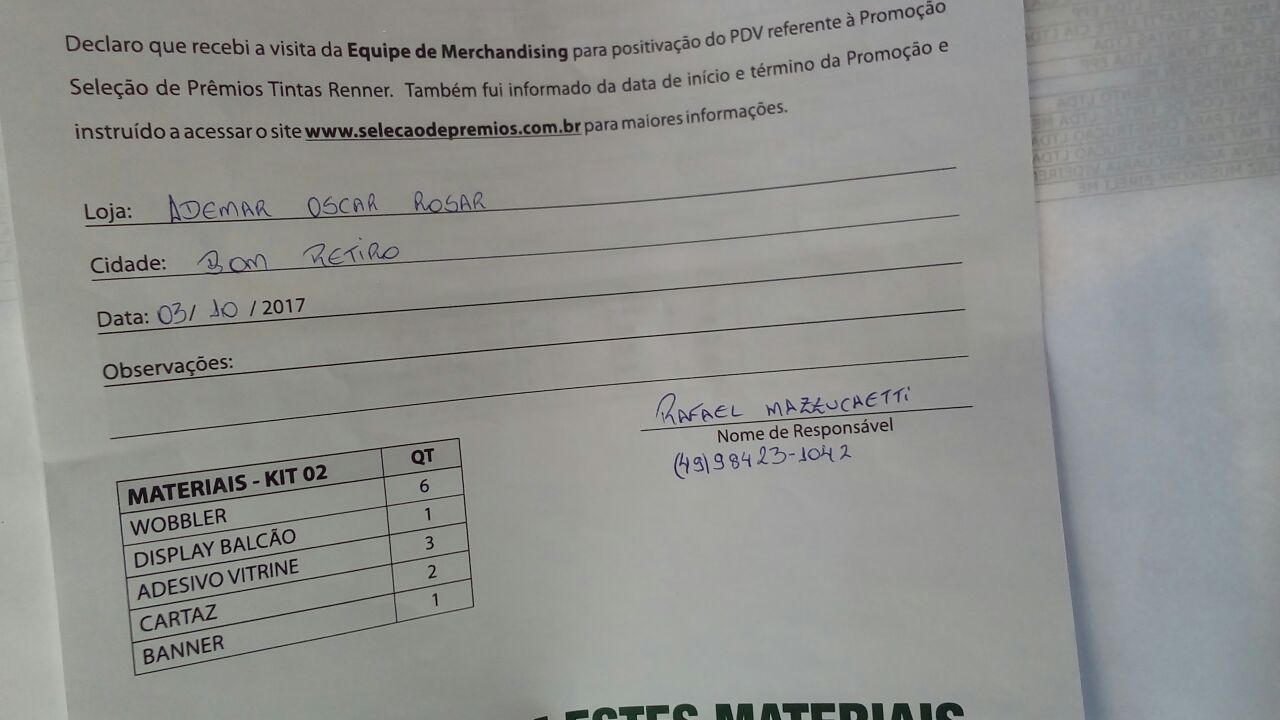 Declaro que recebi a visita da Equipe de Merchandising para positivação do PDV referente à Promoção
Seleção de Prêmios Tintas Renner. Também fui informado da data de início e término da Promoção e
instruído a acessar o site www.selecaodepremios.com.br para maiores informações.
Loja: ADEMAR OSCAR ROSAR
Cidade: BOM RETIRO
Data: 03/ 10 / 2017
Observações:
RAFAEL MAZZUCAETTI
Nome de Responsável
(49)98423-1042
MATERIAIS - KIT 02 QT
WOBBLER 6
DISPLAY BALCÃO 1
ADESIVO VITRINE 3
CARTAZ 2
BANNER 1
ESTES MATERIAIS